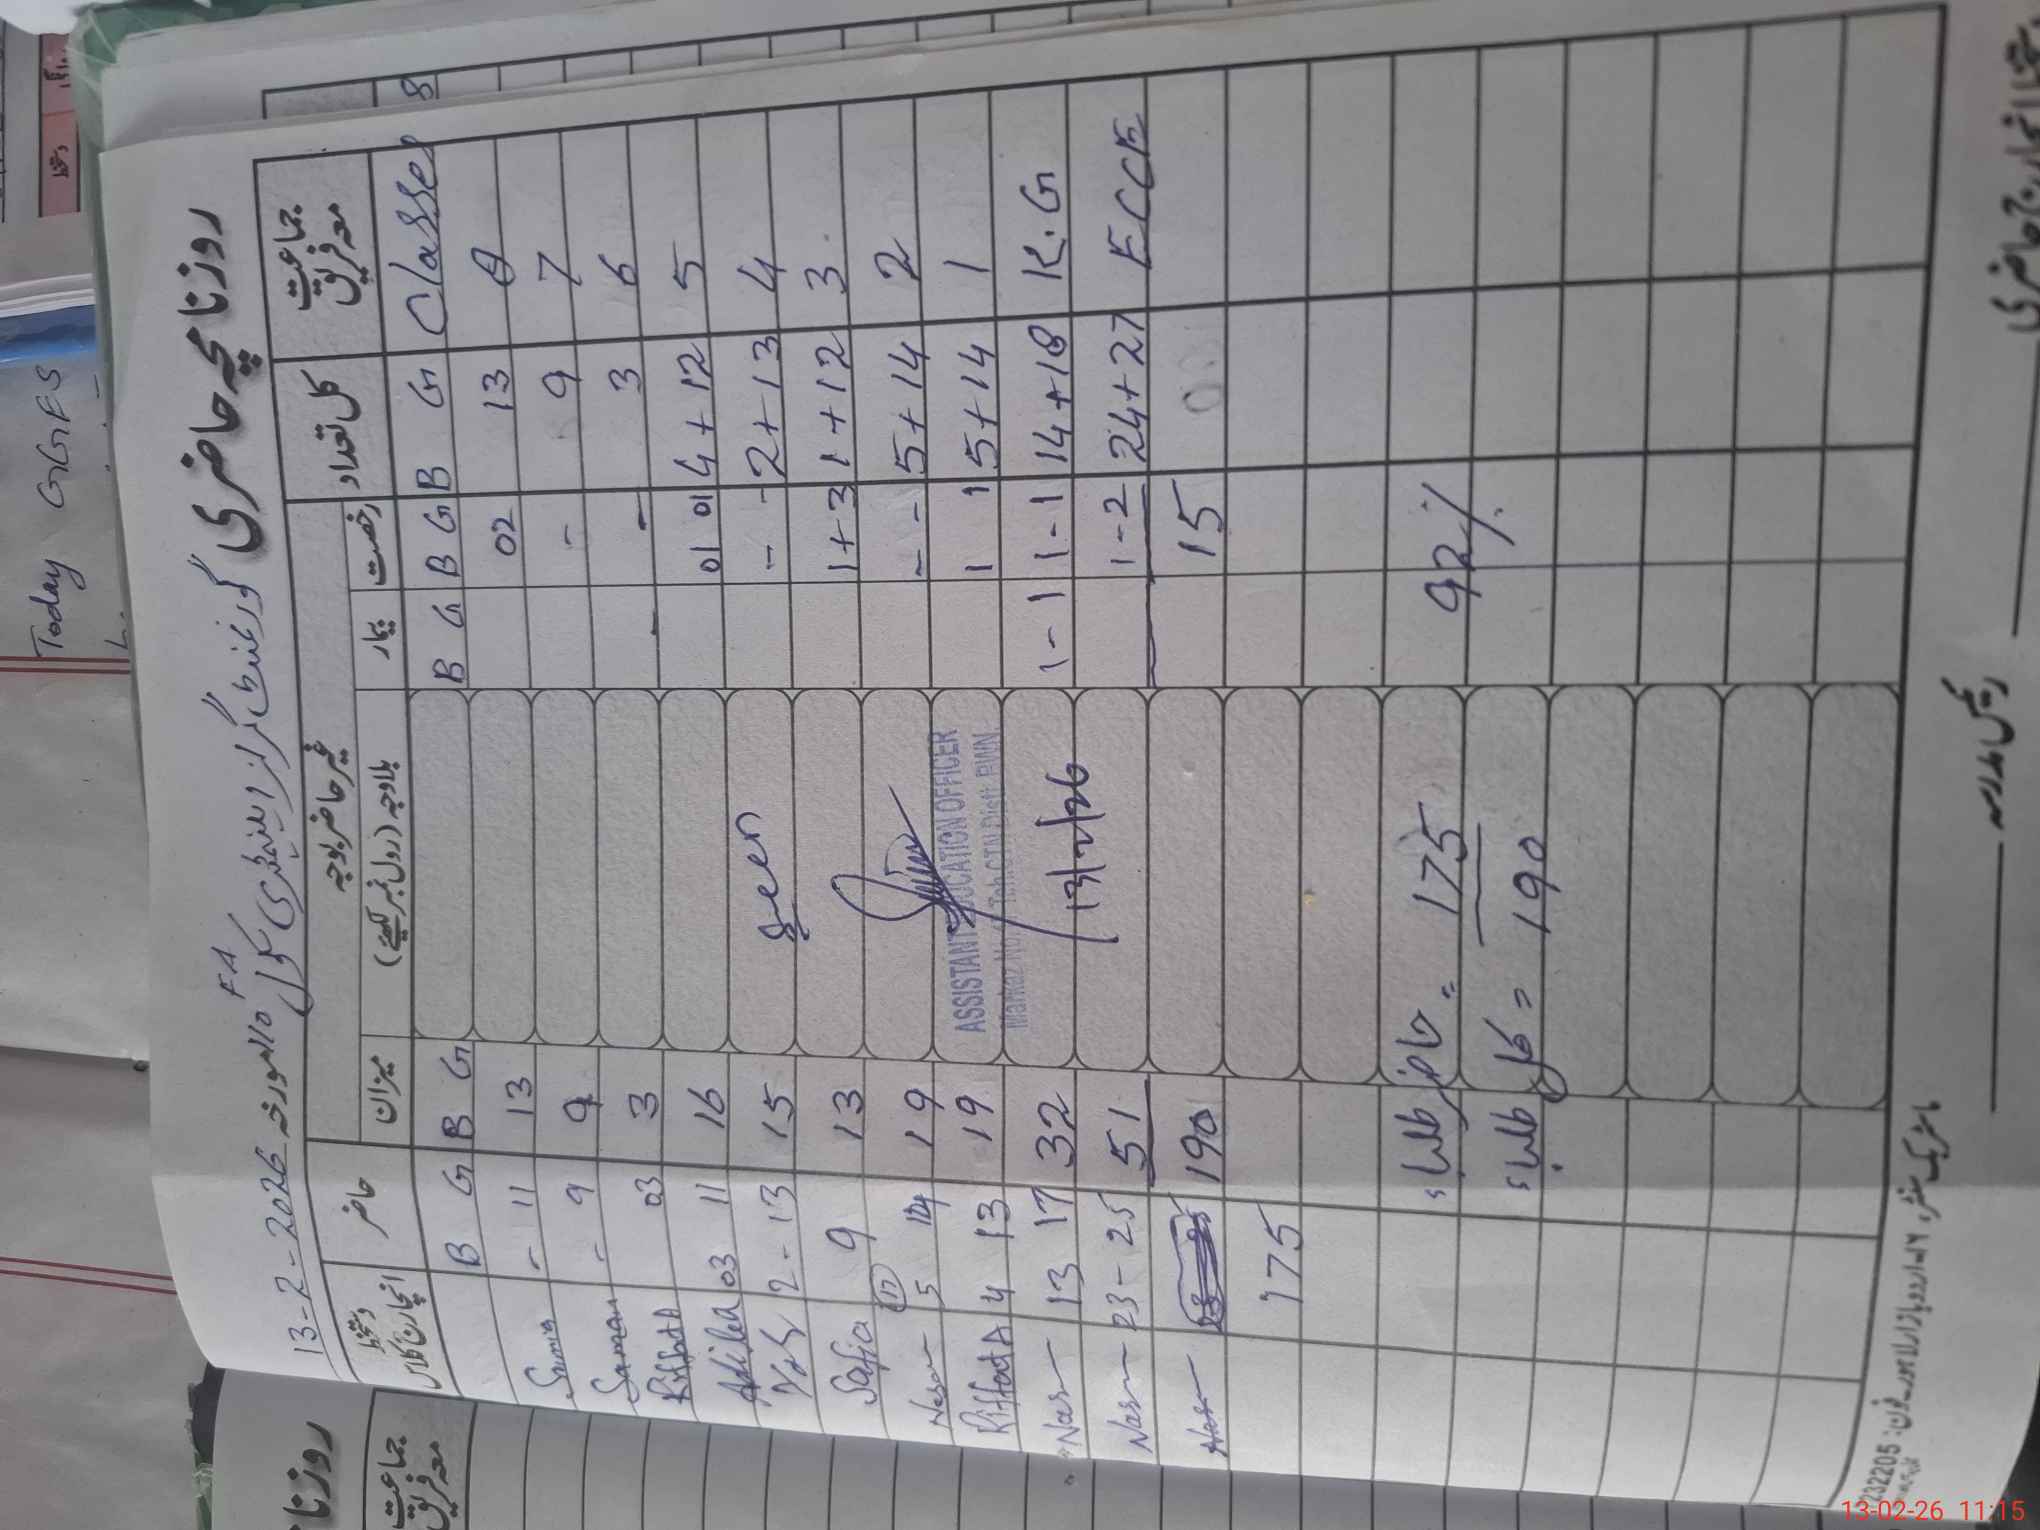 Today GGES
روزنامچہ حاضری
گورنمنٹ گرلز ایلیمنٹری سکول
FA
مورخہ 13-2-2026
جماعت معہ فریق
کل تعداد
غیر حاضر بلاوجہ
رخصت
بیمار
بلاوجہ (رول نمبر لکھیئے)
میزان
حاضر
دستخط انچارج کلاس
Classes B G B G B G B G B G
8 13 02 13 - 11 Samia
7 9 - 9 - 9 Saman
6 3 - - 3 03 RiffatA
5 4+12 01 01 16 11 03 Adila
4 2+13 - - 15 2-13
3 1+12 1+3 13 9 Safia
2 5+14 - - 19 14 5
1 5+14 1 1 19 13 4 RiffatA
K.G 14+18 1-1 1-1 32 17 13
ECCE 24+27 1-2 51 23-25
15 190
175
Seen
ASSISTANT EDUCATION OFFICER
13/2/26
طلباء حاضر = 175
92%
طلباء کل = 190
رئیس مدرسہ
دستخط انچارج حاضری
232205
روزنا
جماعت معہ فریق
13-02-26 11:15